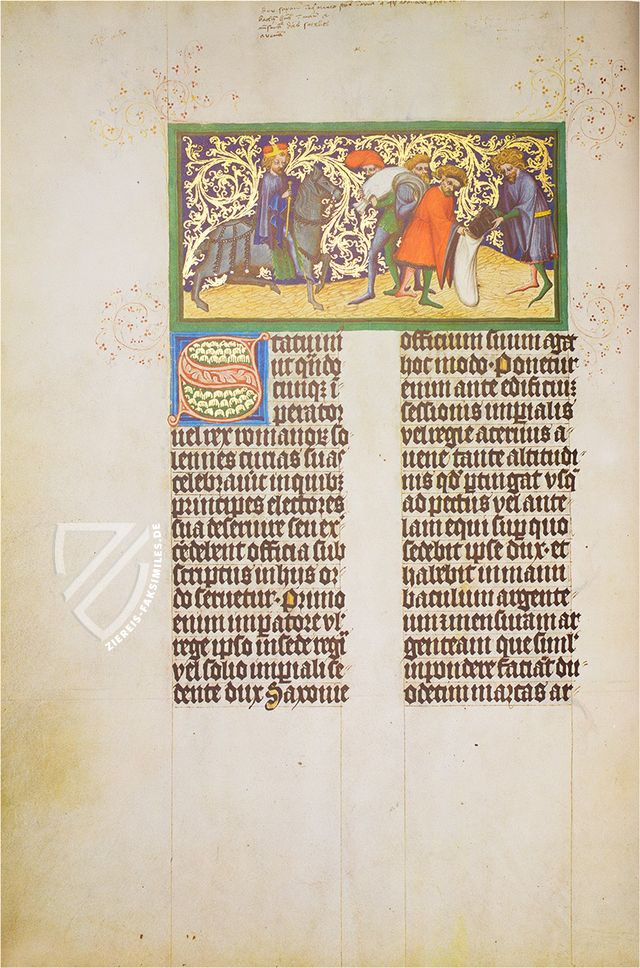 Statuim
ut qn̄do
cūiqꝫ ī
perator
uel rex romanoꝝ so
lennes curias suas
celebrauit in quibꝫ
principes electores
sua deseruire seu ex
cedelent officia sub
scriptus in hus or
do seruetur · Primo
enim imperatore vl'
rege ipso in sede regī
vel solio impiali se
dente dux Saxonie
officium suum agat
hoc modo · Ponetur
enim ante edificiū
sessionis impialis
vel regie aceruus a
uene tante altitudi
nis qd' ꝑtingat vsqꝫ
ad pectus vel ante
lam equi sup quo
sedebit ipse dux · et
habebit in manu
baculum argente
um et mensuram ar
genteam que simul
in pondere faciāt du
odecim marcas ar
ZIEREIS-FAKSIMILES.DE